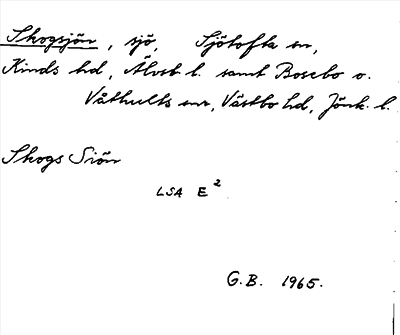 Skogsjön, sjö, Sjötofta sn,
Kinds hd, Älvsb. l. samt Bosebo o.
Våthults snr, Västbo hd, Jönk. l.
Skogs Siön
LSA E²
G.B. 1965.